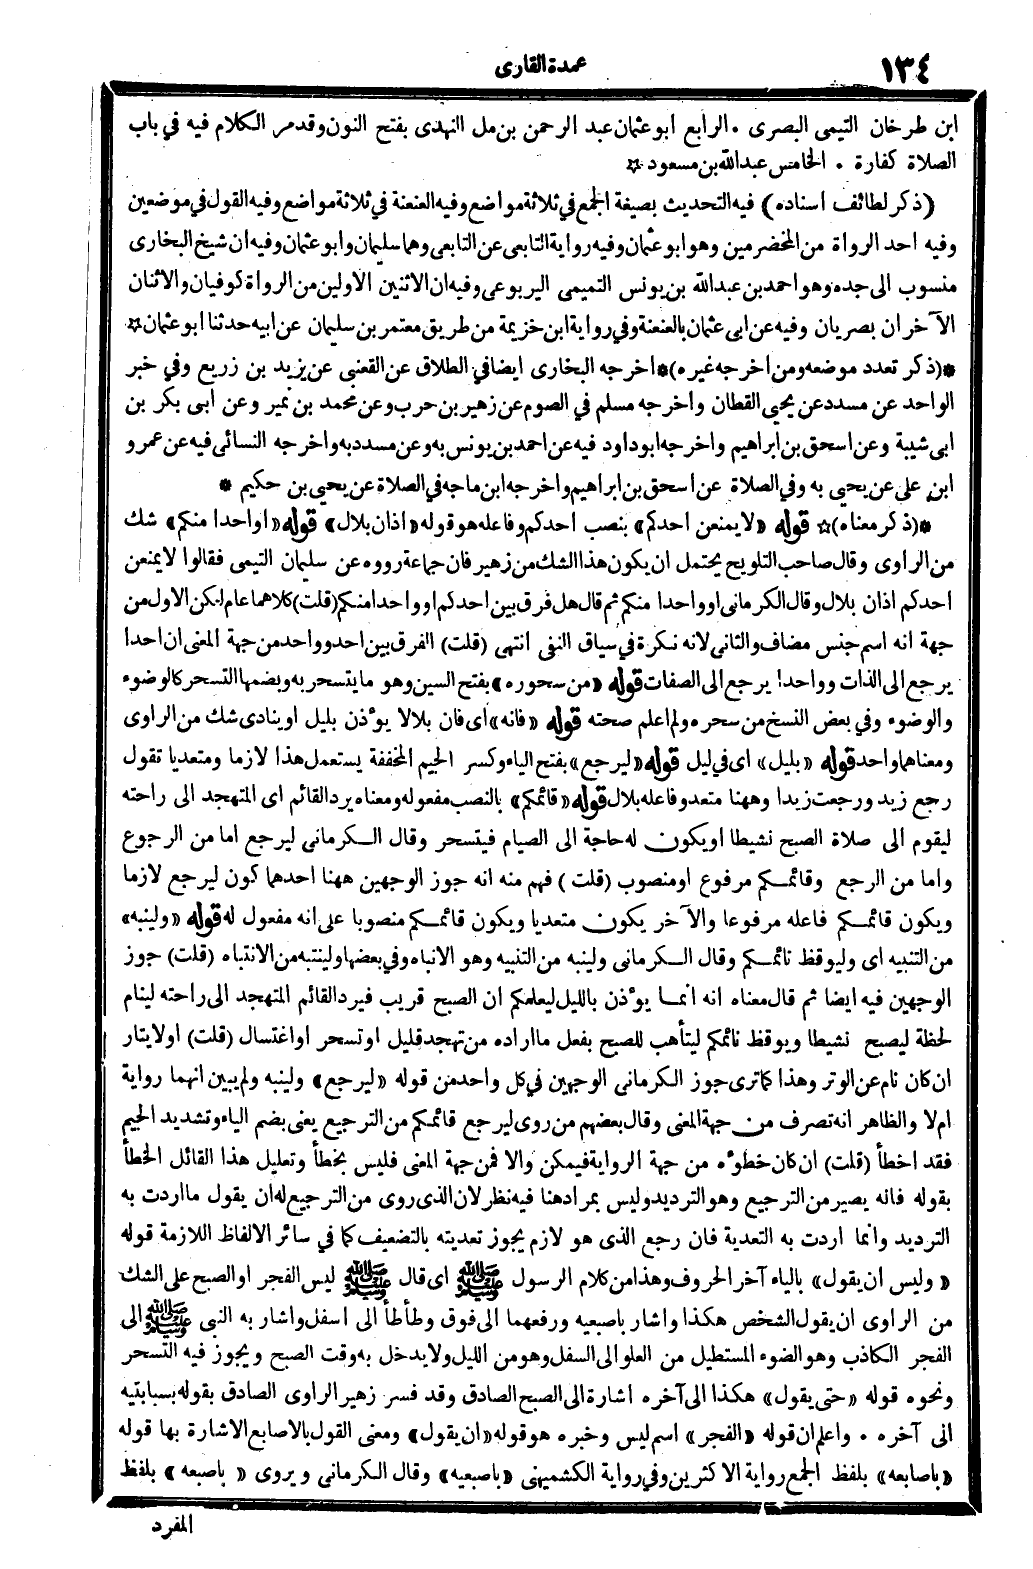 ١٣٤
عمدة القارى
ابن طرخان التيمى البصرى . الرابع ابو عثمان عبد الرحمن بن مل النهدى بفتح النون وقد مر الكلام فيه فى باب
الصلاة كفارة . الخامس عبد الله بن مسعود ☆
(ذكر لطائف اسناده) فيه التحديث بصيغة الجمع فى ثلاثة مواضع وفيه العنعنة فى ثلاثة مواضع وفيه القول فى موضعين
وفيه احد الرواة من المخضرمين وهو ابو عثمان وفيه رواية التابعى عن التابعى وهما سليمان وابو عثمان وفيه ان شيخ البخارى
منسوب الى جده وهو احمد بن عبد الله بن يونس التميمى اليربوعى وفيه ان الاثنين الاولين من الرواة كوفيان والاثنان
الآخران بصريان وفيه عن ابى عثمان بالعنعنة وفى رواية ابن خزيمة من طريق معتمر بن سليمان عن ابيه حدثنا ابو عثمان ☆
*(ذكر تعدد موضعه ومن اخرجه غيره)* اخرجه البخارى ايضا فى الطلاق عن القعنبى عن يزيد بن زريع وفى خبر
الواحد عن مسدد عن يحيى القطان واخرجه مسلم فى الصوم عن زهير بن حرب وعن محمد بن نمير وعن ابى بكر بن
ابى شيبة وعن اسحق بن ابراهيم واخرجه ابو داود فيه عن احمد بن يونس به وعن مسدد به واخرجه النسائى فيه عن عمرو
ابن على عن يحيى به وفى الصلاة عن اسحق بن ابراهيم واخرجه ابن ماجه فى الصلاة عن يحيى بن حكيم *
*(ذكر معناه)☆ قوله «لا يمنعن احدكم» بنصب احدكم وفاعله هو قوله «اذان بلال» قوله «او احدا منكم» شك
من الراوى وقال صاحب التلويح يحتمل ان يكون هذا الشك من زهير فان جماعة رووه عن سليمان التيمى فقالوا لا يمنعن
احدكم اذان بلال وقال الكرمانى او واحدا منكم ثم قال هل فرق بين احدكم او واحدا منكم (قلت) كلاهما عام لكن الاول من
جهة انه اسم جنس مضاف والثانى لانه نكرة فى سياق النفى انتهى (قلت) الفرق بين احد وواحد من جهة المعنى ان احدا
يرجع الى الذات وواحدا يرجع الى الصفات قوله «من سحوره» بفتح السين وهو ما يتسحر به وبضمها التسحر كالوضوء
والوضوء وفى بعض النسخ من سحره ولم اعلم صحته قوله «فانه» اى فان بلالا يؤذن بليل او ينادى شك من الراوى
ومعناهما واحد قوله «بليل» اى فى ليل قوله «ليرجع» بفتح الياء وكسر الجيم المخففة يستعمل هذا لازما ومتعديا تقول
رجع زيد ورجعت زيدا وههنا متعد وفاعله بلال قوله «قائمكم» بالنصب مفعوله ومعناه يرد القائم اى المتهجد الى راحته
ليقوم الى صلاة الصبح نشيطا او يكون له حاجة الى الصيام فيتسحر وقال الكرمانى ليرجع اما من الرجوع
واما من الرجع وقائمكم مرفوع او منصوب (قلت) فهم منه انه جوز الوجهين ههنا احدهما كون ليرجع لازما
ويكون قائمكم فاعله مرفوعا والآخر يكون متعديا ويكون قائمكم منصوبا على انه مفعول له قوله «ولينبه»
من التنبيه اى وليوقظ نائمكم وقال الكرمانى ولينبه من التنبيه وهو الانباه وفى بعضها ولينتبه من الانتباه (قلت) جوز
الوجهين فيه ايضا ثم قال معناه انه انما يؤذن بالليل ليعلمكم ان الصبح قريب فيرد القائم المتهجد الى راحته لينام
لحظة ليصبح نشيطا ويوقظ نائمكم ليتأهب للصبح بفعل ما اراده من تهجد قليل او تسحر او اغتسال (قلت) او لايتار
ان كان نام عن الوتر وهذا كما ترى جوز الكرمانى الوجهين فى كل واحد من قوله «ليرجع» ولينبه ولم يبين انهما رواية
ام لا والظاهر انه تصرف من جهة المعنى وقال بعضهم من روى ليرجع قائمكم من الترجيع يعنى بضم الياء وتشديد الجيم
فقد اخطأ (قلت) ان كان خطؤه من جهة الرواية فيمكن والا فمن جهة المعنى فليس بخطأ وتعليل هذا القائل الخطأ
بقوله فانه يصير من الترجيع وهو الترديد وليس بمراد هنا فيه نظر لان الذى روى من الترجيع له ان يقول ما اردت به
الترديد وانما اردت به التعدية فان رجع الذى هو لازم يجوز تعديته بالتضعيف كما فى سائر الالفاظ اللازمة قوله
«وليس ان يقول» بالياء آخر الحروف وهذا من كلام الرسول ﷺ اى قال ﷺ ليس الفجر او الصبح على الشك
من الراوى ان يقول الشخص هكذا واشار باصبعيه ورفعهما الى فوق وطأطأ الى اسفل واشار به النبى ﷺ الى
الفجر الكاذب وهو الضوء المستطيل من العلو الى السفل وهو من الليل ولا يدخل به وقت الصبح ويجوز فيه التسحر
ونحوه قوله «حتى يقول» هكذا الى آخره اشارة الى الصبح الصادق وقد فسر زهير الراوى الصادق بقوله بسبابتيه
الى آخره . واعلم ان قوله «الفجر» اسم ليس وخبره هو قوله «ان يقول» ومعنى القول بالاصابع الاشارة بها قوله
«باصابعه» بلفظ الجمع رواية الاكثرين وفى رواية الكشميهنى «باصبعيه» وقال الكرمانى ويروى «باصبعه» بلفظ
المفرد